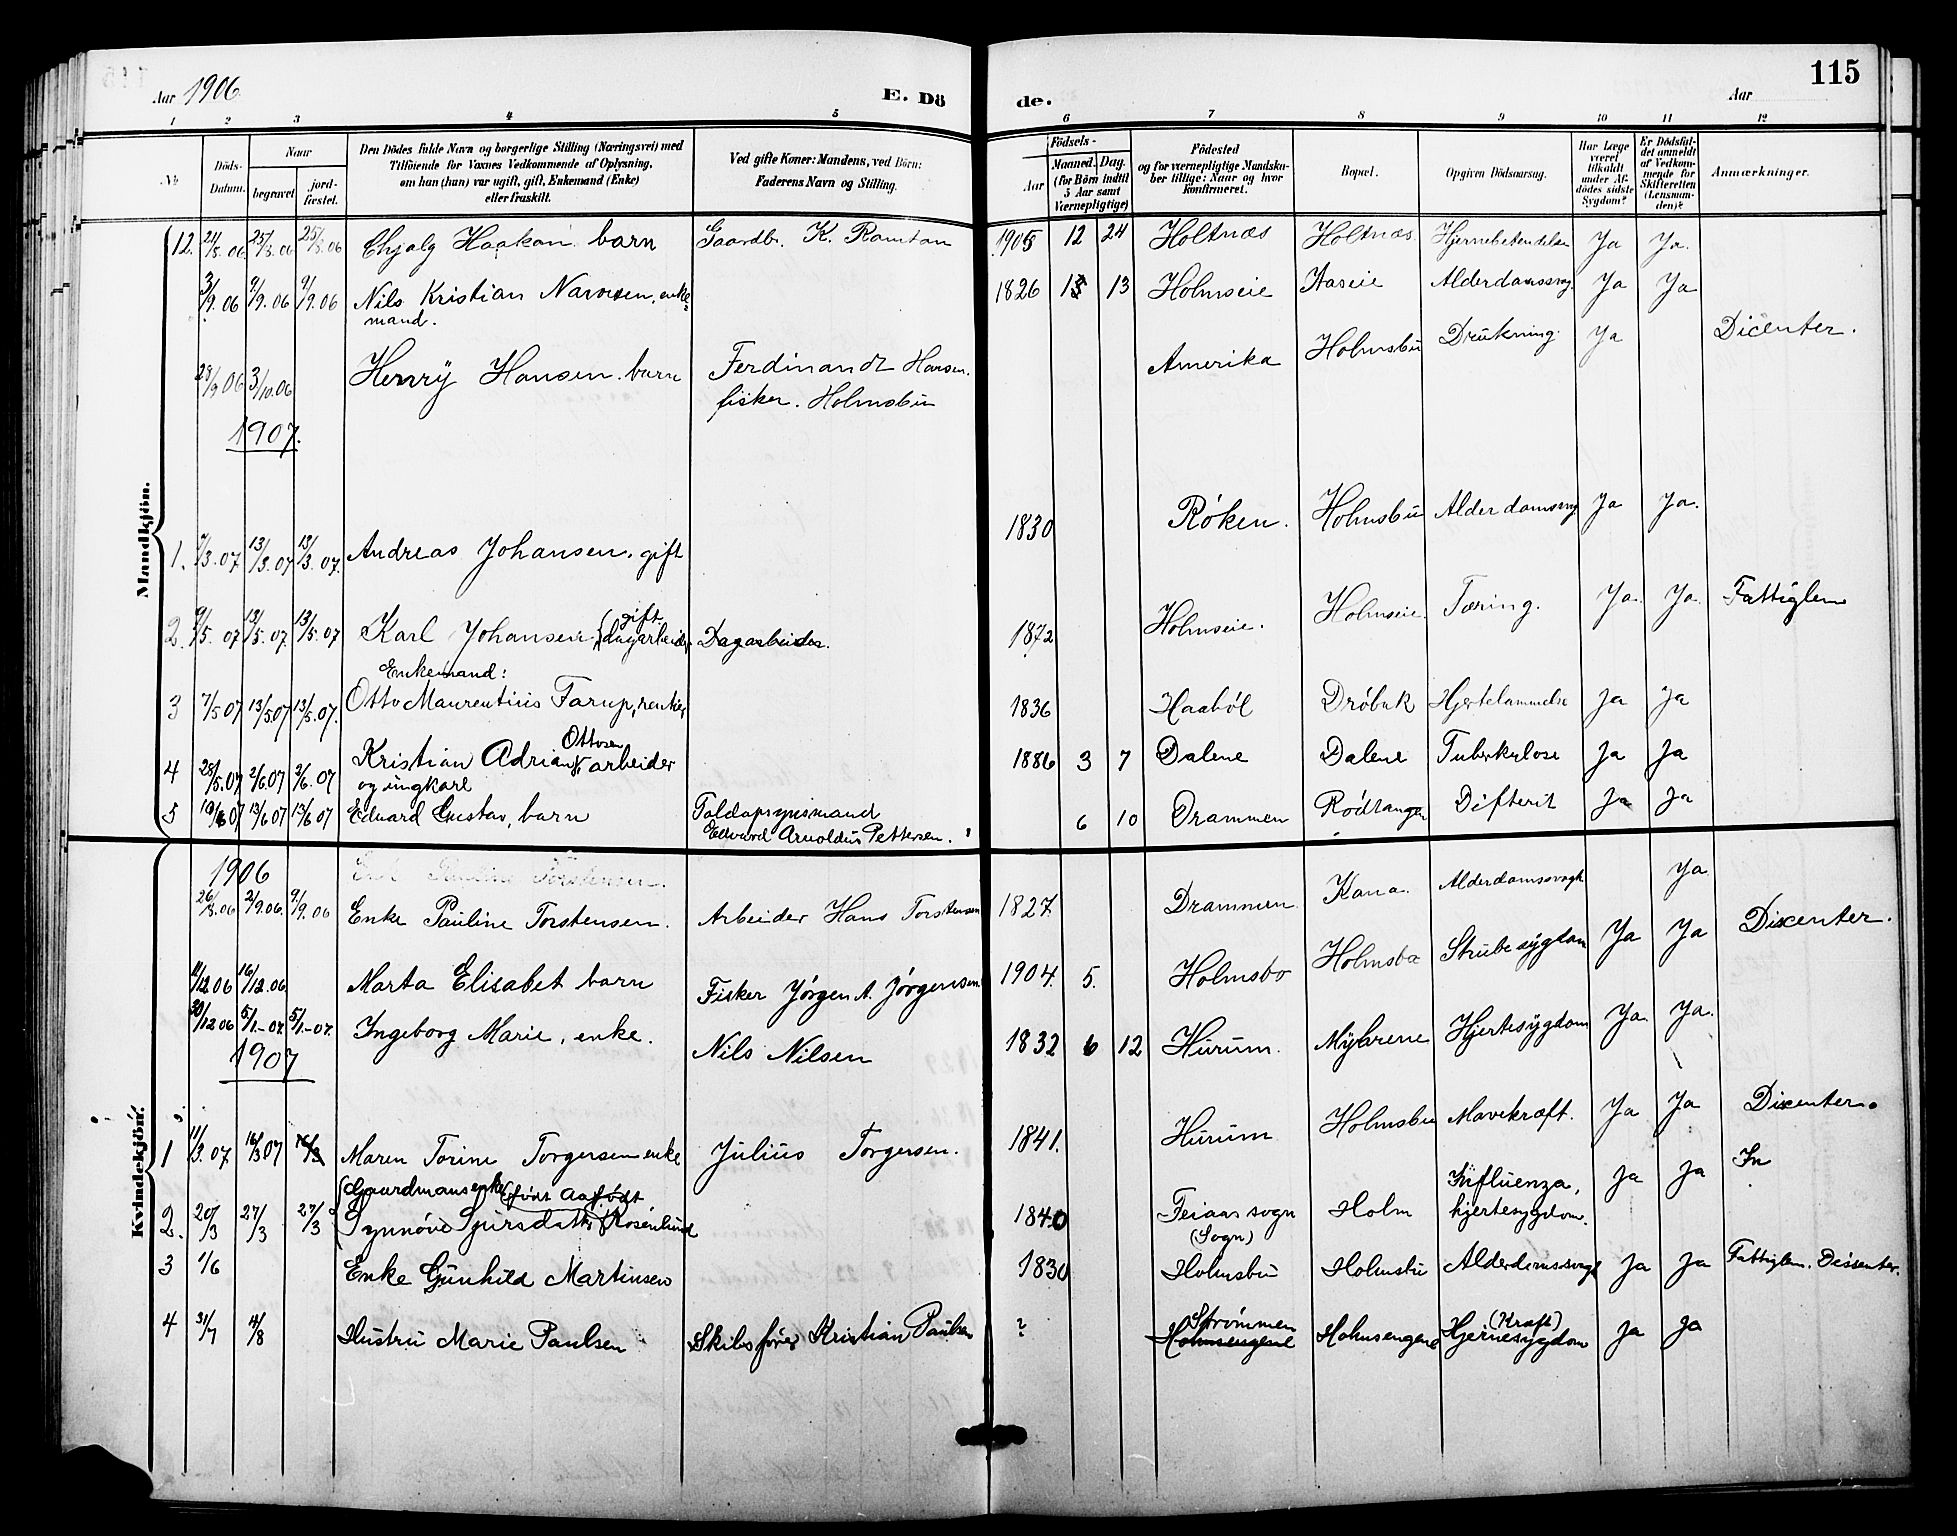 115
Aar 1906
E. Dö
de.
Aar
1 2 3 4 5 6 7 8 9 10 11 12
№
Döds-Datum.
Naar
begravet
jord-fæstet.
Den Dödes fulde Navn og borgerlige Stilling (Næringsvei) med
Tilföiende for Voxnes Vedkommende af Oplysning,
om han (hun) var ugift, gift, Enkemand (Enke)
eller fraskilt.
Ved gifte Koner: Mandens, ved Börn:
Faderens Navn og Stilling.
Födsels-
Aar
Maaned. Dag.
(for Börn indtil
5 Aar samt
Værnepligtige)
Födested
og for værnepligtige Mandska-
ber tillige: Naar og hvor
konfirmeret.
Bopæl.
Opgiven Dödsaarsag.
Har Læge
været
tilkaldt
under Af-
dödes sidste
Sygdom?
Er Dödsfal-
det anmeldt
af Vedkom-
mende for
Skifteretten
(Lensman-
den)?
Anmærkninger.
Mandkjön.
12. 21/8. 06 25/8. 06 25/8. 06 Haakon barn Gaardbr. K. 1905 12 24 Holtnæs Holtnæs Ja Ja.
3/9. 06 9/9. 06 9/9. 06 Nils Kristian enke-
mand. 1826 13 Holmseie Aaseie Alderdomssvag. Ja Ja
28/9 06 3/10. 06 Henry Hansen. barn Ferdinandt Hansen.
fisker. Holmsbu Amerika Holmsbu Drukning. Ja Dicenter.
1907.
1. 7/3. 07 13/3. 07 13/3. 07. Andreas Johansen. gift 1830 Røken. Holmsbu Alderdomssvag. Ja Ja.
2. 9/5. 07 13/5. 07. 13/5. 07 Karl Johansen. (gift
dagarbeider Dagarbeider. 1872 Holmseie. Holmseie. Tæring. Ja. Ja. Fattiglem
Enkemand:
3 7/5 07 13/5.07 13/5. 07. Otto Maurentius Farup, 1836 Haabøl Drøbak Hjertelammelse Ja Ja
4 28/5.07 2/6.07 2/6. 07 Kristian Adrian Ottosen, arbeider
og ungkarl 1886 3 7 Dalene Dalene Tuberkulose Ja Ja
5 10/6 07 13/6 07 13/6 07 Edvard Gustav, barn Toldopsynsmand
Edvard Arnoldus Pettersen. 6 10 Drammen Rødtangen Difterit Ja Ja
Kvindekjön.
1906
Enke Pauline Torstensen.
26/8.06 2/9.06. 9/9. 06 Enke Pauline Torstensen. Arbeider Hans Torstensen 1827 Drammen Kana. Alderdomssvagh Ja
11/12 06 16/12.06. Marta Elisabet barn Fisker Jørgen A. Jørgensen. 1904. 5. Holmsbo Holmsbo Strubesygdom Ja Ja Dixenter.
30/12 06 5/1.-07. 5/1.-07. Ingeborg Marie, enke. Nils Nilsen 1832 6 12 Hurum. Myhrene Hjertesygdom Ja. Ja.
1907
1 11/3. 07. 16/3 07 16/3 Maren Torine Torgersen enke Julius Torgersen. 1841. Hurum Holmsbu Mavekræft. Ja Ja Dixenter.
(Gaardmansenke)
2. 20/3 27/3 27/3 Synnøve Rosenlund 1840 Feiaas sogn
(Sogn) Holm Influenza,
hjertesygdom. Ja Ja
3 1/6 Enke Gunhild Martinsen 1830 Holmsbu Holmsbu Alderdomssvagh Ja Ja Fattiglem. Dissenter.
4 31/7 4/8 Hustru Marie Paulsen Skibsfører Kristian Paulsen ? Strømmen
Holmsengene Holmsengene (Kræft)
Hjernesygdom Ja Ja